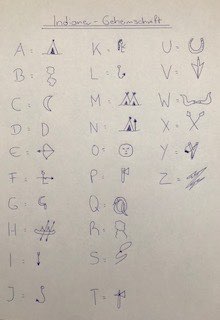 Indianer-Geheimschrift
A = K = U =
B = L = V =
C = M = W =
D = N = X =
E = O = Y =
F = P = Z =
G = Q =
H = R =
I = S =
J = T =